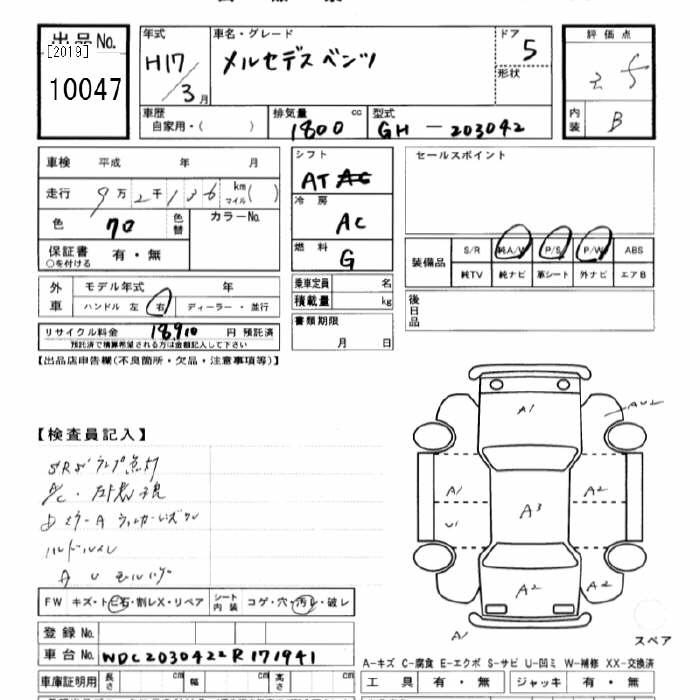 出品 No.
[2019]
10047
年式
H17/3月
車名・グレード
メルセデスベンツ
ドア 5
形状
評価点
内装 B
車歴
自家用・( )
排気量 cc
1800
型式
GH-203042
車検 平成 年 月
走行 9万2千136 km マイル( )
色 70 色替
カラーNo.
保証書 有・無
○を付ける
シフト
AT
冷房
AC
燃料
G
乗車定員 名
積載量 kg
書類期限
月 日
セールスポイント
装備品
S/R 純A/W P/S P/W ABS
純TV 純ナビ 革シート 外ナビ エアB
後日品
外車
モデル年式 年
ハンドル 左 右 ディーラー・並行
リサイクル料金 18910 円 預託済
預託済で精算希望される方は金額記入して下さい
【出品店申告欄(不良箇所・欠品・注意事項等)】
【検査員記入】
SRSランプ点灯
A1
A3
A2
A1
U1
A2
A2
A2
A1
FW キズ・ト 石・割レX・リペア
シート内装 コゲ・穴・汚レ・破レ
登録 No.
車台 No. WDC2030422R171941
スペア
A-キズ C-腐食 E-エクボ S-サビ U-凹ミ W-補修 XX-交換済
車庫証明用 長さ cm 幅 cm 高さ cm
工具 有・無 ジャッキ 有・無